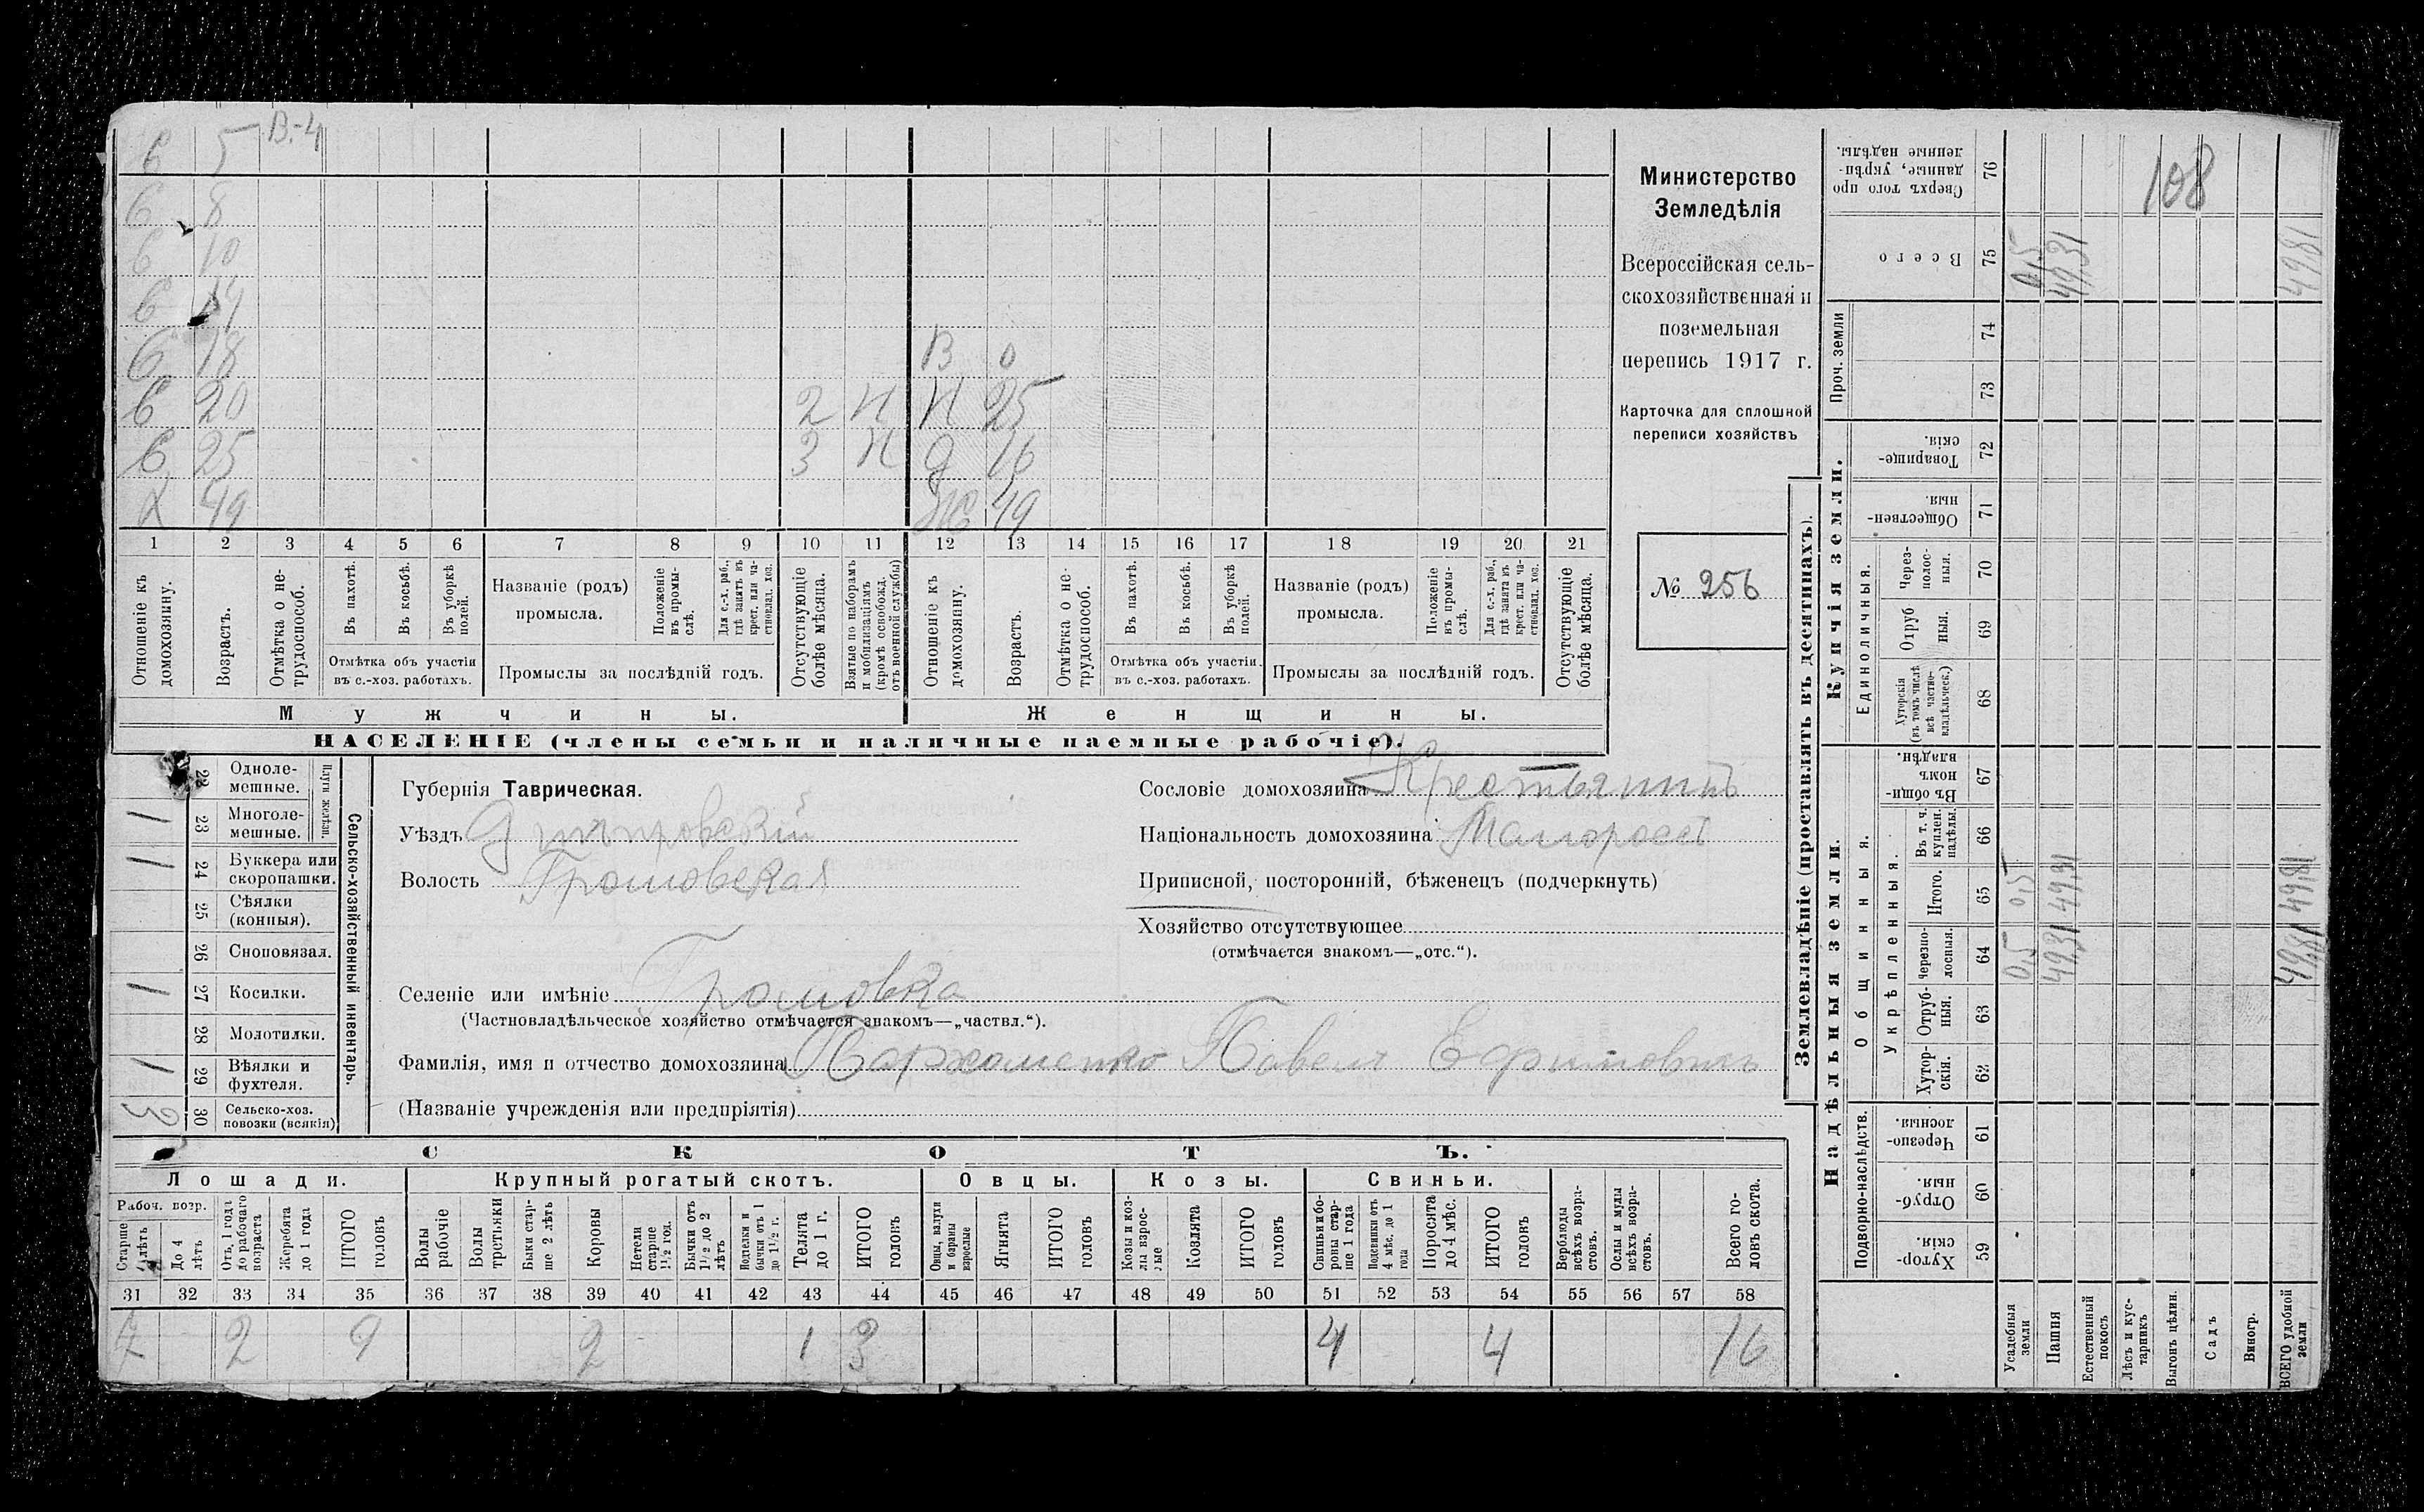 В.-4
с 5
с 8
с 10
с 14
с 18 В 0
с 20 2 Н Н 25
с 25 3 Н д 16
х 49 Ж 49
1 2 3 4 5 6 7 8 9 10 11 12 13 14 15 16 17 18 19 20 21
Отношеніе къ домохозяину.
Возрастъ.
Отмѣтка о не-трудоспособ.
Въ пахотѣ.
Въ косьбѣ.
Въ уборкѣ полей.
Отмѣтка объ участіи
въ с.-хоз. работахъ.
Названіе (родъ)
промысла.
Положеніе въ промы-слѣ.
Для с.-х. раб., гдѣ занятъ въ крест. или ча-стновлад. хоз.
Промыслы за послѣдній годъ.
Отсутствующіе болѣе мѣсяца.
Взятые по наборамъ и мобилизаціямъ (кромѣ освобожд. отъ военной службы)
Отношеніе къ домохозяину.
Возрастъ.
Отмѣтка о не-трудоспособ.
Въ пахотѣ.
Въ косьбѣ.
Въ уборкѣ полей.
Отмѣтка объ участіи
въ с.-хоз. работахъ.
Названіе (родъ)
промысла.
Положеніе въ промы-слѣ.
Для с.-х. раб., гдѣ занятъ въ крест. или ча-стновлад. хоз.
Промыслы за послѣдній годъ.
Отсутствующіе болѣе мѣсяца.
Мужчины.
Женщины.
НАСЕЛЕНІЕ (члены семьи и наличные наемные рабочіе).
Министерство
Земледѣлія
Всероссійская сель-
скохозяйственная и
поземельная
перепись 1917 г.
Карточка для сплошной
переписи хозяйствъ
№ 256
Сельско-хозяйственный инвентарь.
Плуги желѣзн.
22 Одноле-мешные.
1 23 Многоле-мешные.
1 24 Буккера или скоропашки.
25 Сѣялки (конныя).
26 Сноповязал.
1 27 Косилки.
28 Молотилки.
1 29 Вѣялки и фухтеля.
3 30 Сельско-хоз. повозки (всякія)
Губернія Таврическая.
Уѣздъ Днѣпровскій
Волость Громовская
Селеніе или имѣніе Громовка
(Частновладѣльческое хозяйство отмѣчается знакомъ—„частвл.“).
Фамилія, имя и отчество домохозяина Пархоменко Павелъ Ефимовичъ
(Названіе учрежденія или предпріятія)
Сословіе домохозяина Крестьянинъ
Національность домохозяина Малороссъ
Приписной, посторонній, бѣженецъ (подчеркнуть)
Хозяйство отсутствующее
(отмѣчается знакомъ—„отс.“).
СКОТЪ.
Лошади.
Крупный рогатый скотъ.
Овцы.
Козы.
Свиньи.
Рабоч. возр.
Старше 4 лѣтъ
До 4 лѣтъ
Отъ 1 года до рабочаго возраста
Жеребята до 1 года
ИТОГО головъ
Волы рабочіе
Волы третьяки
Быки стар-ше 2 лѣтъ
Коровы
Нетели старше 1½ год.
Бычки отъ 1½ до 2 лѣтъ
Подтелки и бычки отъ 1 до 1½ г.
Телята до 1 г.
ИТОГО головъ
Овцы, валухи и бараны взрослые
Ягнята
ИТОГО головъ
Козы и коз-лы взрос-лые
Козлята
ИТОГО головъ
Свиньи и бо-ровы стар-ше 1 года
Подсвинки отъ 4 мѣс. до 1 года
Поросята до 4 мѣс.
ИТОГО головъ
Верблюды всѣхъ возра-стовъ.
Ослы и мулы всѣхъ возра-стовъ.
Всего го-ловъ скота.
31 32 33 34 35 36 37 38 39 40 41 42 43 44 45 46 47 48 49 50 51 52 53 54 55 56 57 58
7 2 9 2 1 3 4 4 16
Землевладѣніе (проставлять въ десятинахъ).
Надѣльныя земли.
Купчія земли.
Проч. земли
Подворно-наслѣдств.
Общинныя.
Укрѣпленныя.
Единоличныя.
Сверхъ того про-данные, укрѣп-ленные надѣлы. 76
Всего 75
74
73
Товарище-скія. 72
Обществен-ныя. 71
Через-полос-ныя. 70
Отруб-ныя. 69
Хуторскія (въ томъ числѣ всѣ частно-владѣльческ.) 68
Въ общи-номъ владѣн. 67
Въ т. ч. куплен. надѣлы. 66
Итого. 65
Черезпо-лосныя. 64
Отруб-ныя. 63
Хутор-скія. 62
Черезпо-лосныя. 61
Отруб-ныя. 60
Хутор-скія. 59
Усадебныя земли 0,5 0,5 0,5
Пашня 49,31 49,31 49,31
Естественный покосъ
Лѣсъ и кус-тарникъ
Выгонъ цѣлин.
Садъ
Виногр.
ВСЕГО удобной земли 49,81 49,81 49,81
108